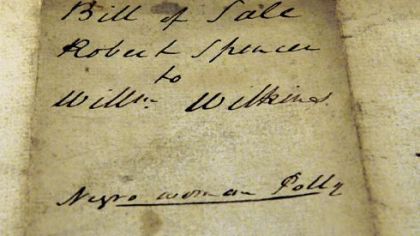 Bill of Sale
Robert Spencer
to
Willm Wilkins
Negro woman Polly